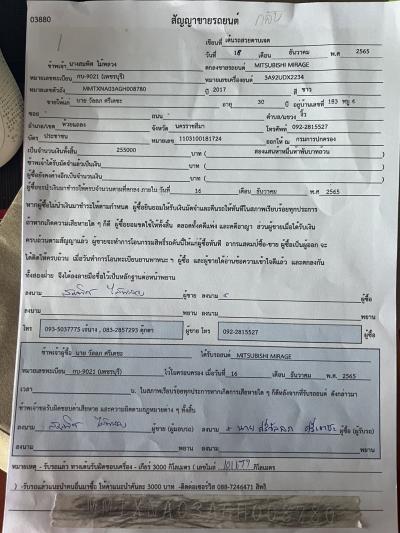 03880
สัญญาขายรถยนต์
กลับ
เขียนที่ เต็นรถสวยตาบเจต
วันที่ 15 เดือน ธันวาคม พ.ศ 2565
ข้าพเจ้า นางสมพิศ ไม้พลวง ตกลงขายรถยนต์ MITSUBISHI MIRAGE
หมายเลขทะเบียน กบ-9021 (เพชรบุรี) หมายเลขเครื่องยนต์ 3A92UDX2234
หมายเลขตัวถัง MMTXNA03AGH008780 ปี 2017 สี ขาว
ขายให้แก่ นาย วัลลภ ศรีเตชะ อายุ 30 ปี อยู่บ้านเลขที่ 183 หมู่ 6
ซอย - ถนน - ตำบล/แขวง งิ้ว
อำเภอ/เขต ห้วยแถลง จังหวัด นครราชสีมา โทรศัพท์ 092-2815527
บัตร ประชาชน หมายเลข 1103100181724 ออกให้ ณ กรมการปกครอง
เป็นจำนวนเงินทั้งสิ้น 255000 บาท ( สองแสนห้าหมื่นห้าพันบาทถ้วน )
ข้าพเจ้าได้รับมัดจำแล้วเป็นเงิน บาท ( )
ผู้ซื้อยังคงค้างอีกเป็นจำนวนเงิน บาท ( )
ผู้ซื้อจะนำเงินมาชำระให้ครบจำนวนตามที่ตกลง ภายใน วันที่ 16 เดือน ธันวาคม พ.ศ 2565
หากผู้ซื้อไม่นำเงินมาชำระให้ตามกำหนด ผู้ซื้อยินยอมให้ริบเงินมัดจำและคืนรถให้ทันทีในสภาพเรียบร้อยทุกประการ
ถ้าหากเกิดความเสียหายใด ๆ ก็ดี ผู้ซื้อยอมชดใช้ให้ทั้งสิ้น ตลอดทั้งคดีแพ่ง และคดีอาญา ส่วนผู้ขายเมื่อได้รับเงิน
ครบถ้วนตามสัญญาแล้ว ผู้ขายจะทำการโอนกรรมสิทธิ์รถคันนี้ให้แก่ผู้ซื้อทันที อากรแสตมป์ซื้อ-ขาย ผู้ซื้อเป็นผู้ออก จะ
ได้ติดให้ครบถ้วน เมื่อวันทำการโอนทะเบียนยานพาหนะ ฯ ผู้ซื้อ และผู้ขายได้อ่านข้อความเข้าใจดีแล้ว และตกลงกัน
ทั้งสองฝ่าย จึงได้ลงลายมือชื่อไว้เป็นหลักฐานต่อหน้าพยาน
ลงนาม สมพิศ ไม้พลวง ผู้ขาย ลงนาม ผู้ซื้อ
ลงนาม พยาน ลงนาม พยาน
โทร 093-5037775 เจ้นาง , 083-2857293 ตุ๊กตา ผู้ขาย โทร 092-2815527 ผู้ซื้อ
ข้าพเจ้าผู้ซื้อ นาย วัลลภ ศรีเตชะ ได้รับรถยนต์ MITSUBISHI MIRAGE
หมายเลขทะเบียน กบ-9021 (เพชรบุรี) ไว้ในครอบครอง เมื่อวันที่ 16 เดือน ธันวาคม พ.ศ 2565
เวลา น. ในสภาพเรียบร้อยทุกประการหากเกิดการเสียหายใด ๆ ก็ดีหลังจากที่รับรถยนต์ ดังกล่าวมา
ข้าพเจ้าขอรับผิดชอบค่าเสียหาย และความผิดตามกฎหมายต่าง ๆ ทั้งสิ้น
ลงนาม สมพิศ ไม้พลวง ผู้ขาย (ผู้มอบรถ) ลงนาม ผู้ซื้อ (ผู้รับรถ)
ลงนาม พยาน ลงนาม พยาน
หมายเหตุ - รับรถแล้ว ทางเต็นรับผิดชอบเครื่อง - เกียร์ 3 กิโลเมตร ( เลขไมล์ กิโลเมตร
) -รับรถแล้วแนะนำคนอื่นมาซื้อ ให้ค่าแนะนำคันละ 3000 บาท -ติดตอเซอร์วิส 088-7246471 สิทธิ์
MMTXNA03AGH008780